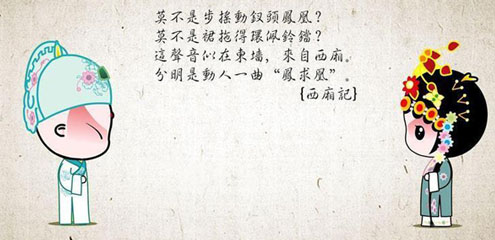 莫不是步摇動釵頭鳳凰？
莫不是裙拖得環佩鈴鐺？
這聲音似在東墙，來自西廂。
分明是動人一曲“鳳求凰”。
{西廂記}